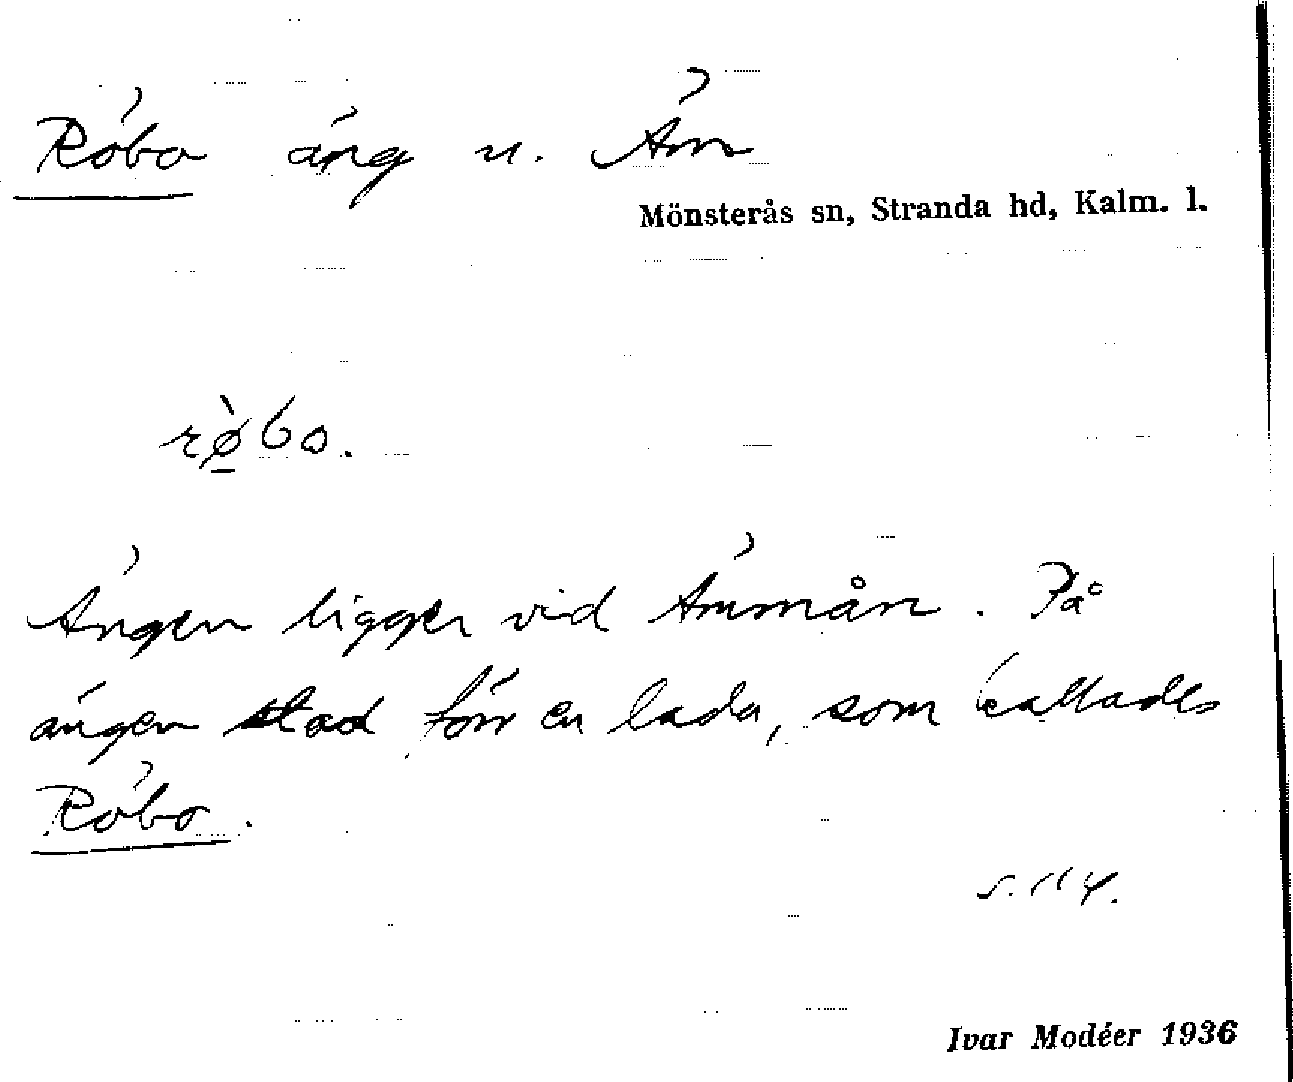 Röbo äng u. Äm
Mönsterås sn, Stranda hd, Kalm. l.
rø̀bo.
Ängen ligger vid Ämmån. På
ängen stod förr en lada, som kallades
Röbo.
s. 114.
Ivar Modéer 1936